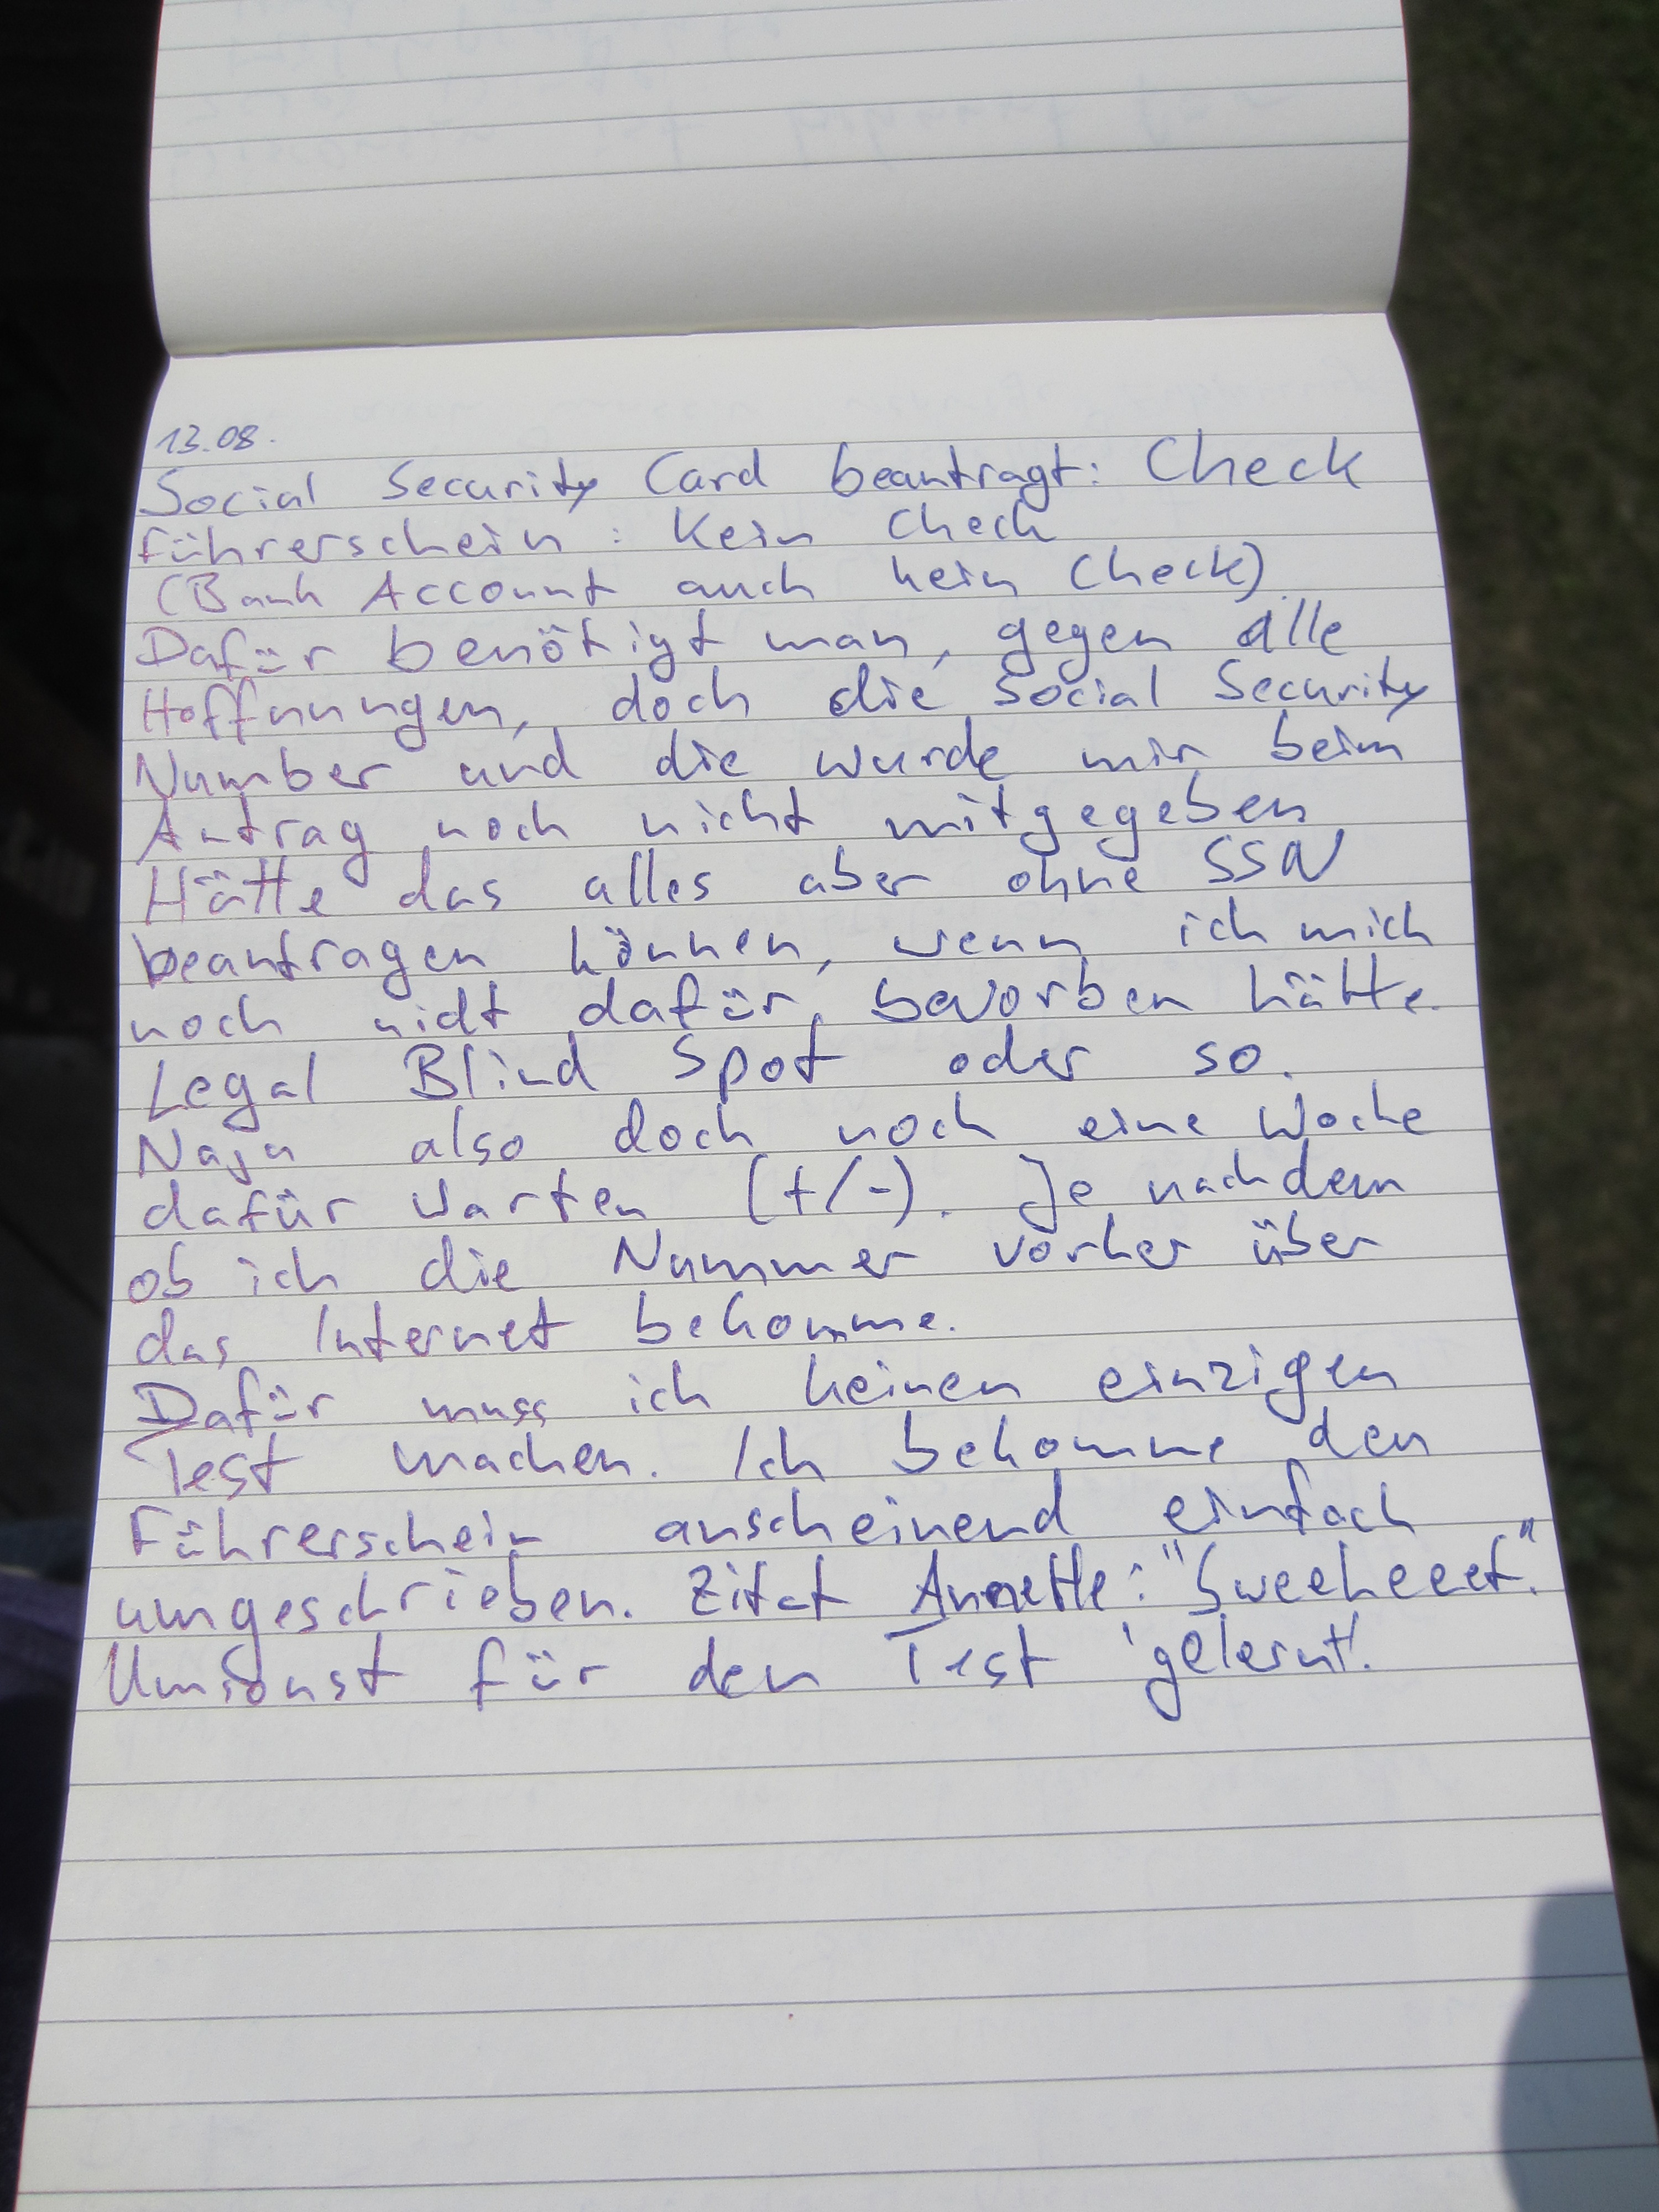 13.08.
Social Security Card beantragt: Check
Führerschein: Kein Check
(Bank Account auch kein Check)
Dafür benötigt man, gegen alle
Hoffnungen, doch die Social Security
Number und die wurde mir beim
Antrag noch nicht mitgegeben
Hätte das alles aber ohne SSN
beantragen können, wenn ich mich
noch nicht dafür beworben hätte.
Legal Blind Spot oder so.
Naja also doch noch eine Woche
dafür warten (+/-). Je nachdem
ob ich die Nummer vorher über
das Internet bekomme.
Dafür muss ich keinen einzigen
Test machen. Ich bekomme den
Führerschein anscheinend einfach
umgeschrieben. Zitat Annette: "Sweeheeet."
Umsonst für den Test 'gelernt'.